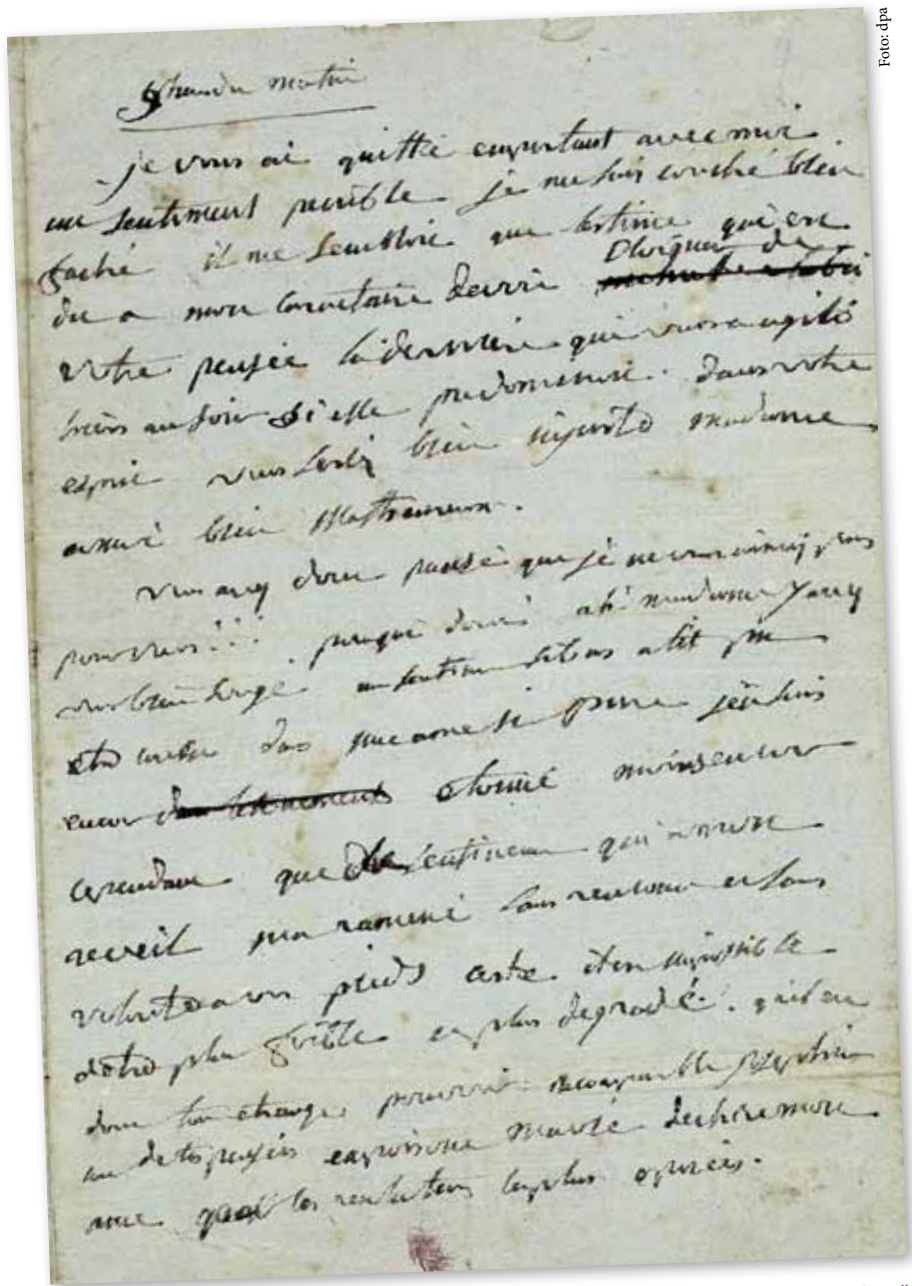 9 heures du matin
je vous ai quitté emportant avec moi
un sentiment penible je me suis couché bien
faché il me sembloit que l'estime qui est
eloigner de
du a mon caractaire devoit
votre pensée la derniere qui vous a agité
hiers au soir Si elle predominoit dans votre
esprit vous seriez bien injuste madame
et moi bien malheureux.
vous avez donc pensé que je ne vous aimai pas
pour vous!!! pour qui donc ah! madame
bien changé un sentiment si bas a t il pu
etre conçu dans une ame si pure j'en suis
encor etonné moins encor
cependant que du sentiment qui a mon
reveil m'a ramené sans rancune et sans
volonté a vos pieds certe il est impossible
d'etre plus foible et plus degradé. quel est
donc ton etrange pouvoir incomparable josephine
une de tes pensées empoisonne ma vie dechire mon
ame les resolutions les plus
Foto: dpa